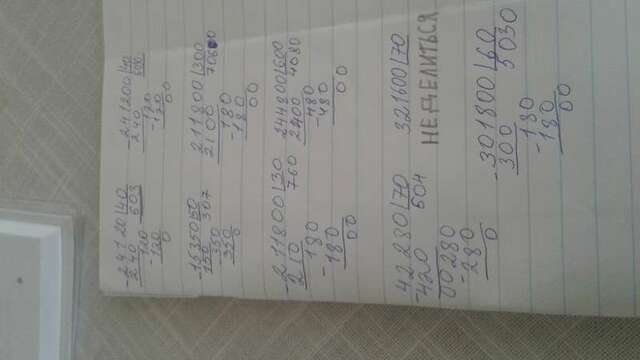 24120|40
240 603
120
120
0
241200|40
240
120
120
00
15350|50
150 307
350
350
0
211800|300
2100 70600
180
180
00
211800|30
210 760
180
180
00
244800|600
2400 4080
480
480
00
42280|70
420 604
00280
280
0
321600|70
НЕ ДЕЛИТЬСЯ
301800|60
300 5030
180
180
00